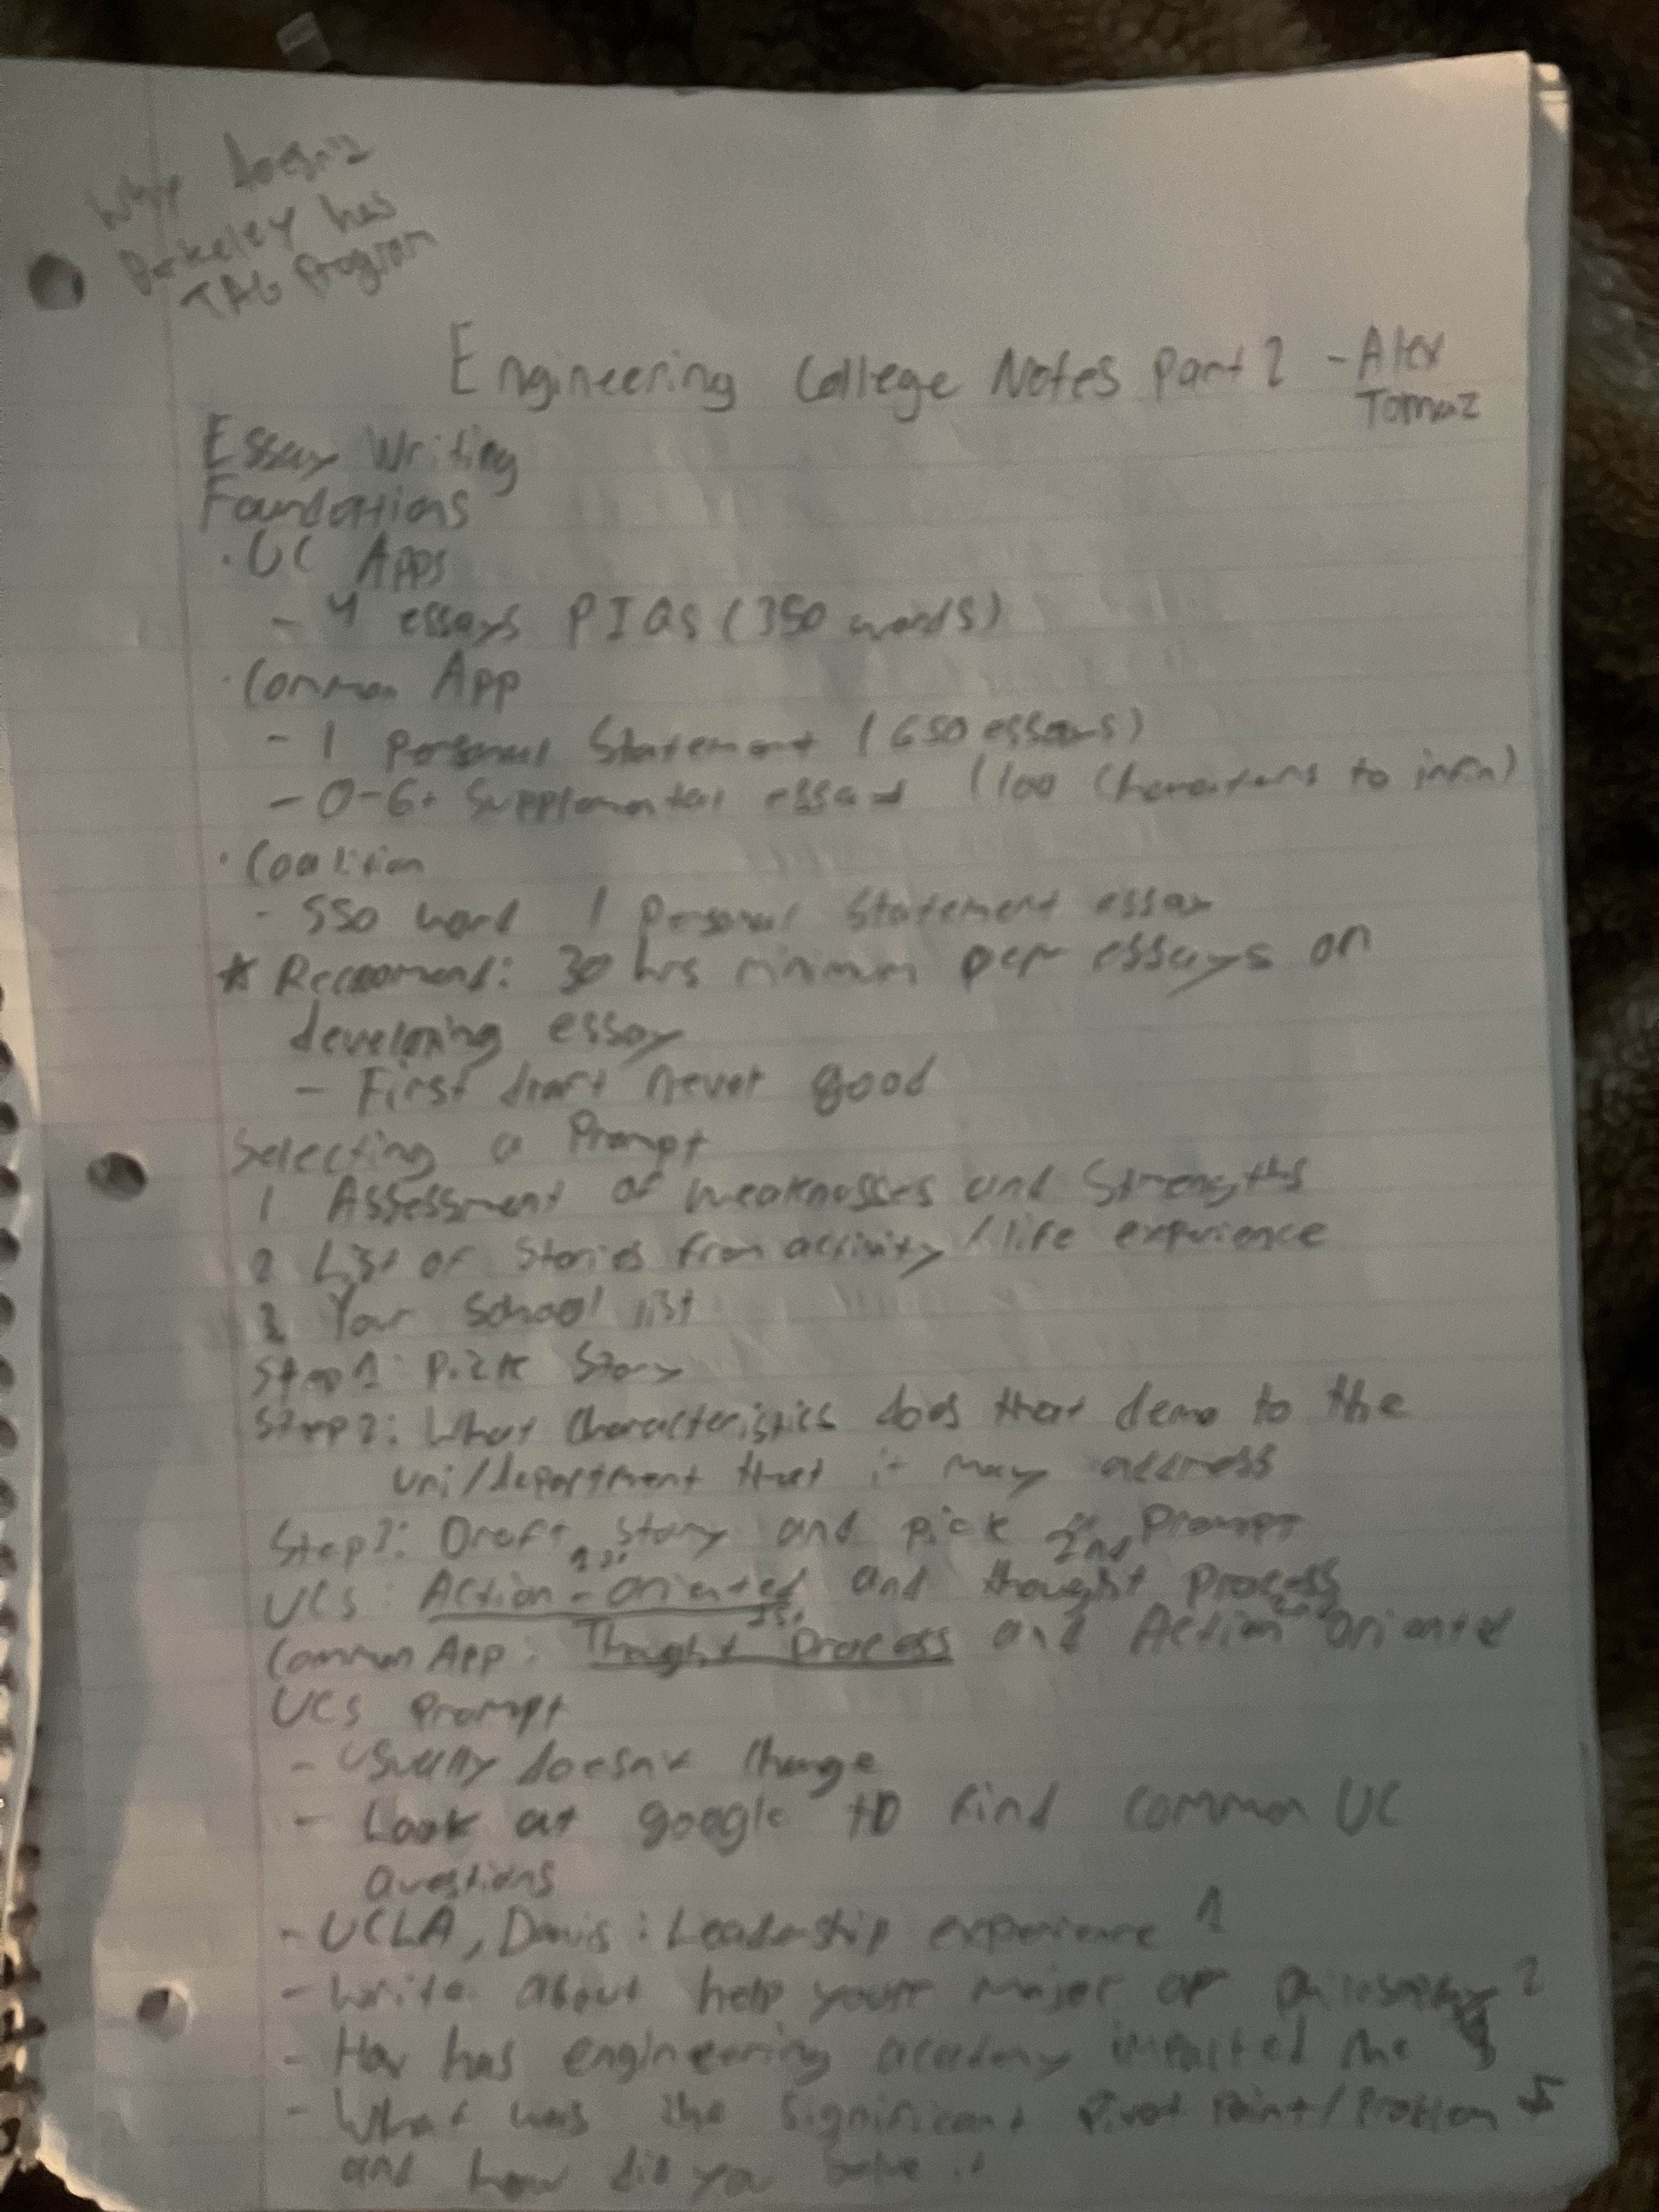 Why doesn't
Berkeley has
TAG Program
Engineering College Notes Part 2 - Alex
Tomaz
Essay Writing
Foundations
· UC Apps
- 4 essays PIQs (350 words)
· Common App
- 1 Personal Statement (650 essays)
- 0-6+ Supplemental essays (100 Characters to infin)
· Coalition
- 550 word 1 Personal Statement essay
* Reccoment: 30 hrs minimum per essays on
developing essay
- First draft never good
Selecting a Prompt
1 Assessment of weaknesses and Strengths
2 List of Stories from activity/life experience
3 Your School list
Step 1: Pick Story
Step 2: What Characteristics does that demo to the
uni/department that it may address
Step 3: Draft story and pick a Prompt
1st 2nd
UCs: Action-oriented and thought process
1st 2nd
Common App: Thought process and Action oriented
UCs Prompt
- Usually doesn't change
- Look at google to find common UC
Questions
- UCLA, Davis: Leadership experience 1
- Write about help your major or philosophy 2
- How has engineering academy impacted me 3
- What was the significant Pivot Point/Problem 5
and how did you solve it